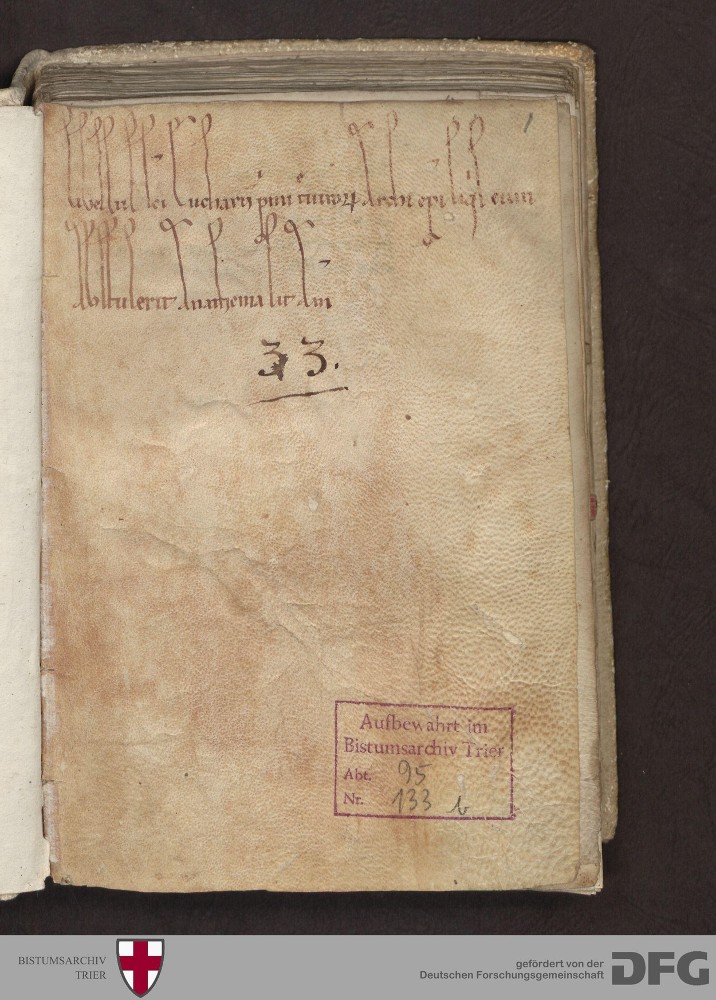 1
Archiepi siqs eum
Abstulerit Anathema sit Am
33.
Aufbewahrt im
Bistumsarchiv Trier
Abt. 95
Nr. 133 b
BISTUMSARCHIV
TRIER
gefördert von der
Deutschen Forschungsgemeinschaft
DFG